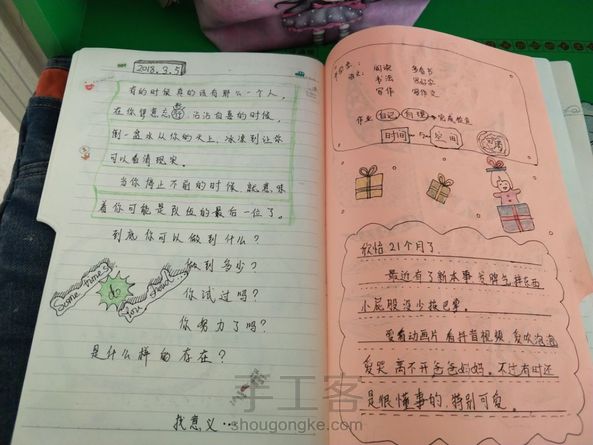 2018.3.5
有的时候真的该有那么一个人，
在你得意忘形，沾沾自喜的时候，
倒一盆水从你的头上，冰凉到让你
可以看清现实。
当你停止不前的时候，就意味
着你可能是队伍的最后一位了。
到底你可以做到什么？
做到多少？
Sometimes do You should
你试过吗？
你努力了吗？
是什么样的存在？
找意义…
语文：阅读 多看书
书法
写作 写作文
作业 自己 整理 完成检查
时间 定西
欣怡21个月了.
最近有了新本事 发脾气 摔东西
小屁股没少挨巴掌。
爱看动画片 看抖音视频 爱吹泡泡
爱哭 离不开爸爸妈妈。不过有时还
是很懂事的，特别可爱。
手工客
shougongke.com